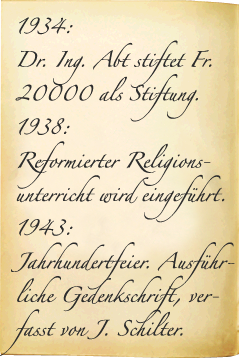 1934:
Dr. Ing. Abt stiftet Fr.
20000 als Stiftung.
1938:
Reformierter Religions-
unterricht wird eingeführt.
1943:
Jahrhundertfeier. Ausführ-
liche Gedenkschrift, ver-
fasst von J. Schilter.